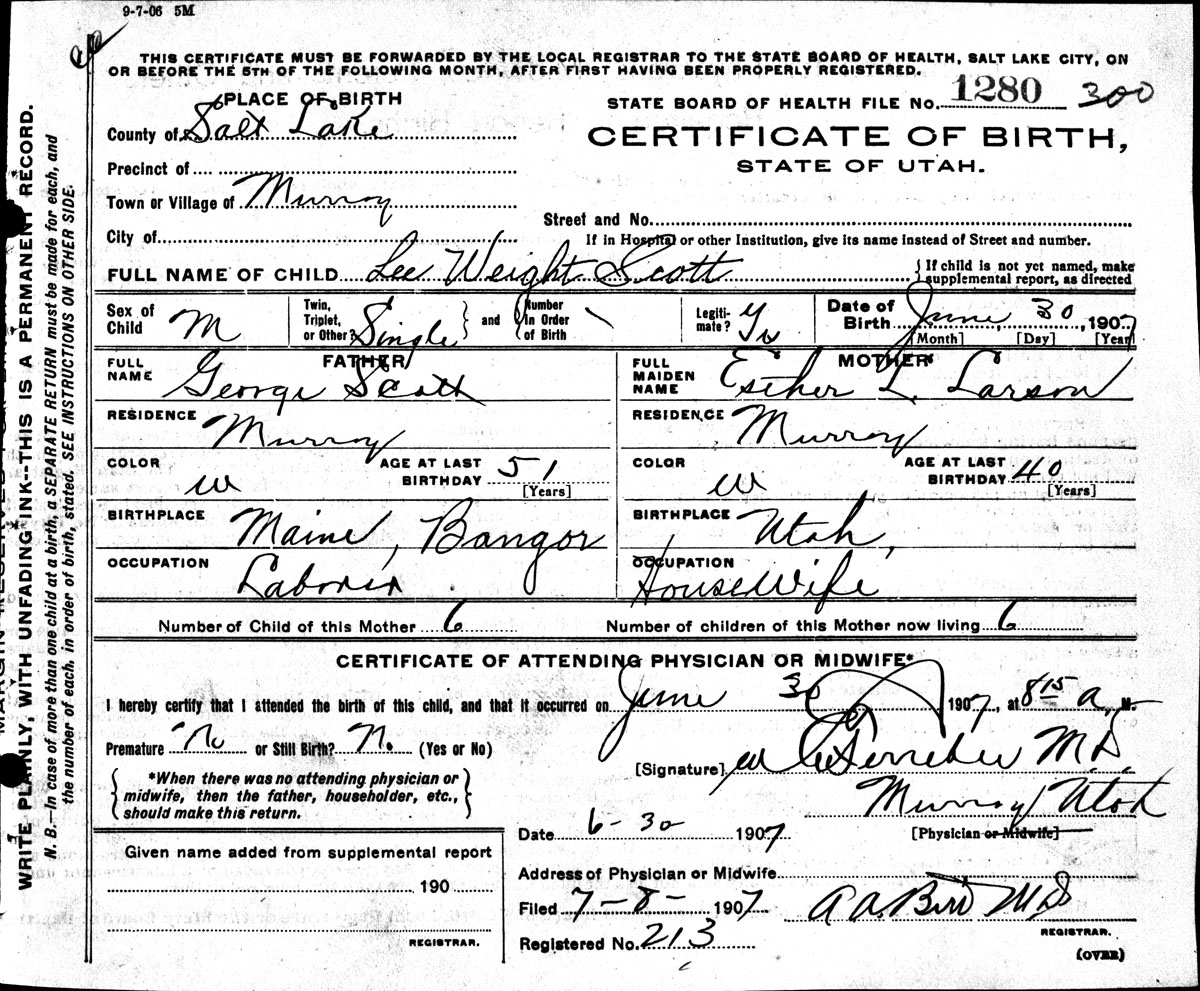 9-7-06 5M
THIS CERTIFICATE MUST BE FORWARDED BY THE LOCAL REGISTRAR TO THE STATE BOARD OF HEALTH, SALT LAKE CITY, ON
OR BEFORE THE 5TH OF THE FOLLOWING MONTH, AFTER FIRST HAVING BEEN PROPERLY REGISTERED.
PLACE OF BIRTH
STATE BOARD OF HEALTH FILE No. 1280 300
County of Salt Lake
CERTIFICATE OF BIRTH,
STATE OF UTAH.
Precinct of
Town or Village of Murray
Street and No.
City of
If in Hospital or other Institution, give its name instead of Street and number.
FULL NAME OF CHILD Lee Weight Scott {If child is not yet named, make
supplemental report, as directed
Sex of Child M
Twin, Triplet, or Other? Single } and { Number in Order of Birth
Legiti-mate? Ys
Date of Birth June 30, 1907
[Month] [Day] [Year]
FATHER
FULL NAME George Scott
MOTHER
FULL MAIDEN NAME Esther L. Larson
RESIDENCE Murray
RESIDENCE Murray
COLOR W AGE AT LAST BIRTHDAY 51 [Years]
COLOR W AGE AT LAST BIRTHDAY 40 [Years]
BIRTHPLACE Maine, Bangor
BIRTHPLACE Utah,
OCCUPATION Laborer
OCCUPATION Housewife
Number of Child of this Mother 6
Number of children of this Mother now living 6
CERTIFICATE OF ATTENDING PHYSICIAN OR MIDWIFE*
I hereby certify that I attended the birth of this child, and that it occurred on June 30 1907, at 8 15 a, M
Premature No or Still Birth? No. (Yes or No)
[Signature] M.D.
*When there was no attending physician or
midwife, then the father, householder, etc.,
should make this return.
Murray Utah
[Physician or Midwife]
Date 6-30 1907
Given name added from supplemental report
190
REGISTRAR.
Address of Physician or Midwife
Filed 7-8- 1907
REGISTRAR.
Registered No. 213
(OVER)
WRITE PLAINLY, WITH UNFADING INK--THIS IS A PERMANENT RECORD.
N. B.—In case of more than one child at a birth, a SEPARATE RETURN must be made for each, and
the number of each, in order of birth, stated. SEE INSTRUCTIONS ON OTHER SIDE.